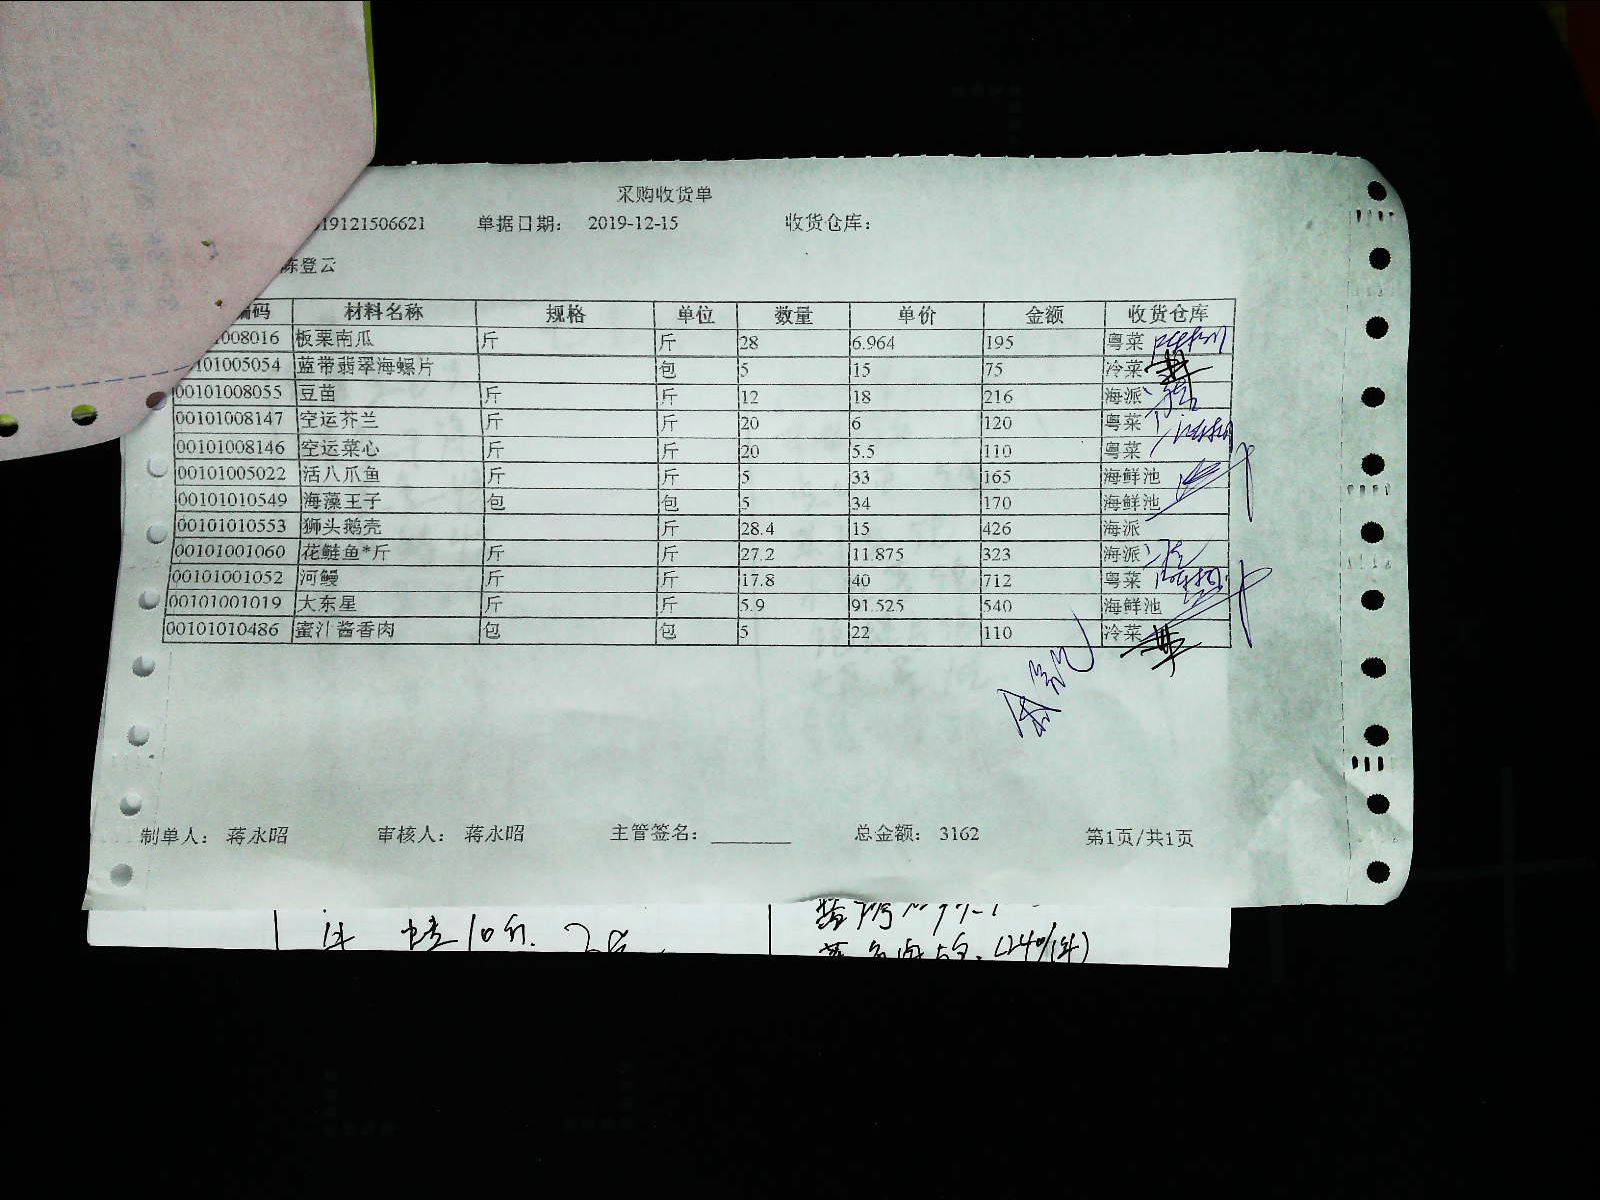 采购收货单
19121506621 单据日期： 2019-12-15 收货仓库：
陈登云
编码 材料名称 规格 单位 数量 单价 金额 收货仓库
1008016 板栗南瓜 斤 斤 28 6.964 195 粤菜
101005054 蓝带翡翠海螺片 包 5 15 75 冷菜
00101008055 豆苗 斤 斤 12 18 216 海派
00101008147 空运芥兰 斤 斤 20 6 120 粤菜
00101008146 空运菜心 斤 斤 20 5.5 110 粤菜
00101005022 活八爪鱼 斤 斤 5 33 165 海鲜池
00101010549 海藻王子 包 包 5 34 170 海鲜池
00101010553 狮头鹅壳 斤 28.4 15 426 海派
00101001060 花鲢鱼*斤 斤 斤 27.2 11.875 323 海派
00101001052 河鳗 斤 斤 17.8 40 712 粤菜
00101001019 大东星 斤 斤 5.9 91.525 540 海鲜池
00101010486 蜜汁酱香肉 包 包 5 22 110 冷菜
制单人： 蒋永昭 审核人： 蒋永昭 主管签名： 总金额： 3162 第1页/共1页